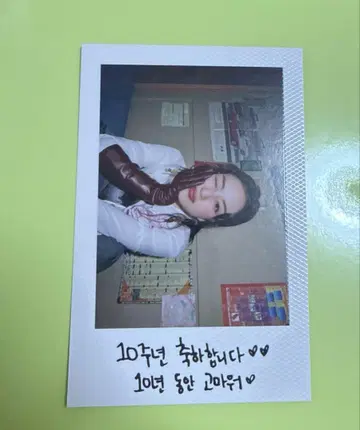 10주년 축하합니다♡♡
10년 동안 고마워♡